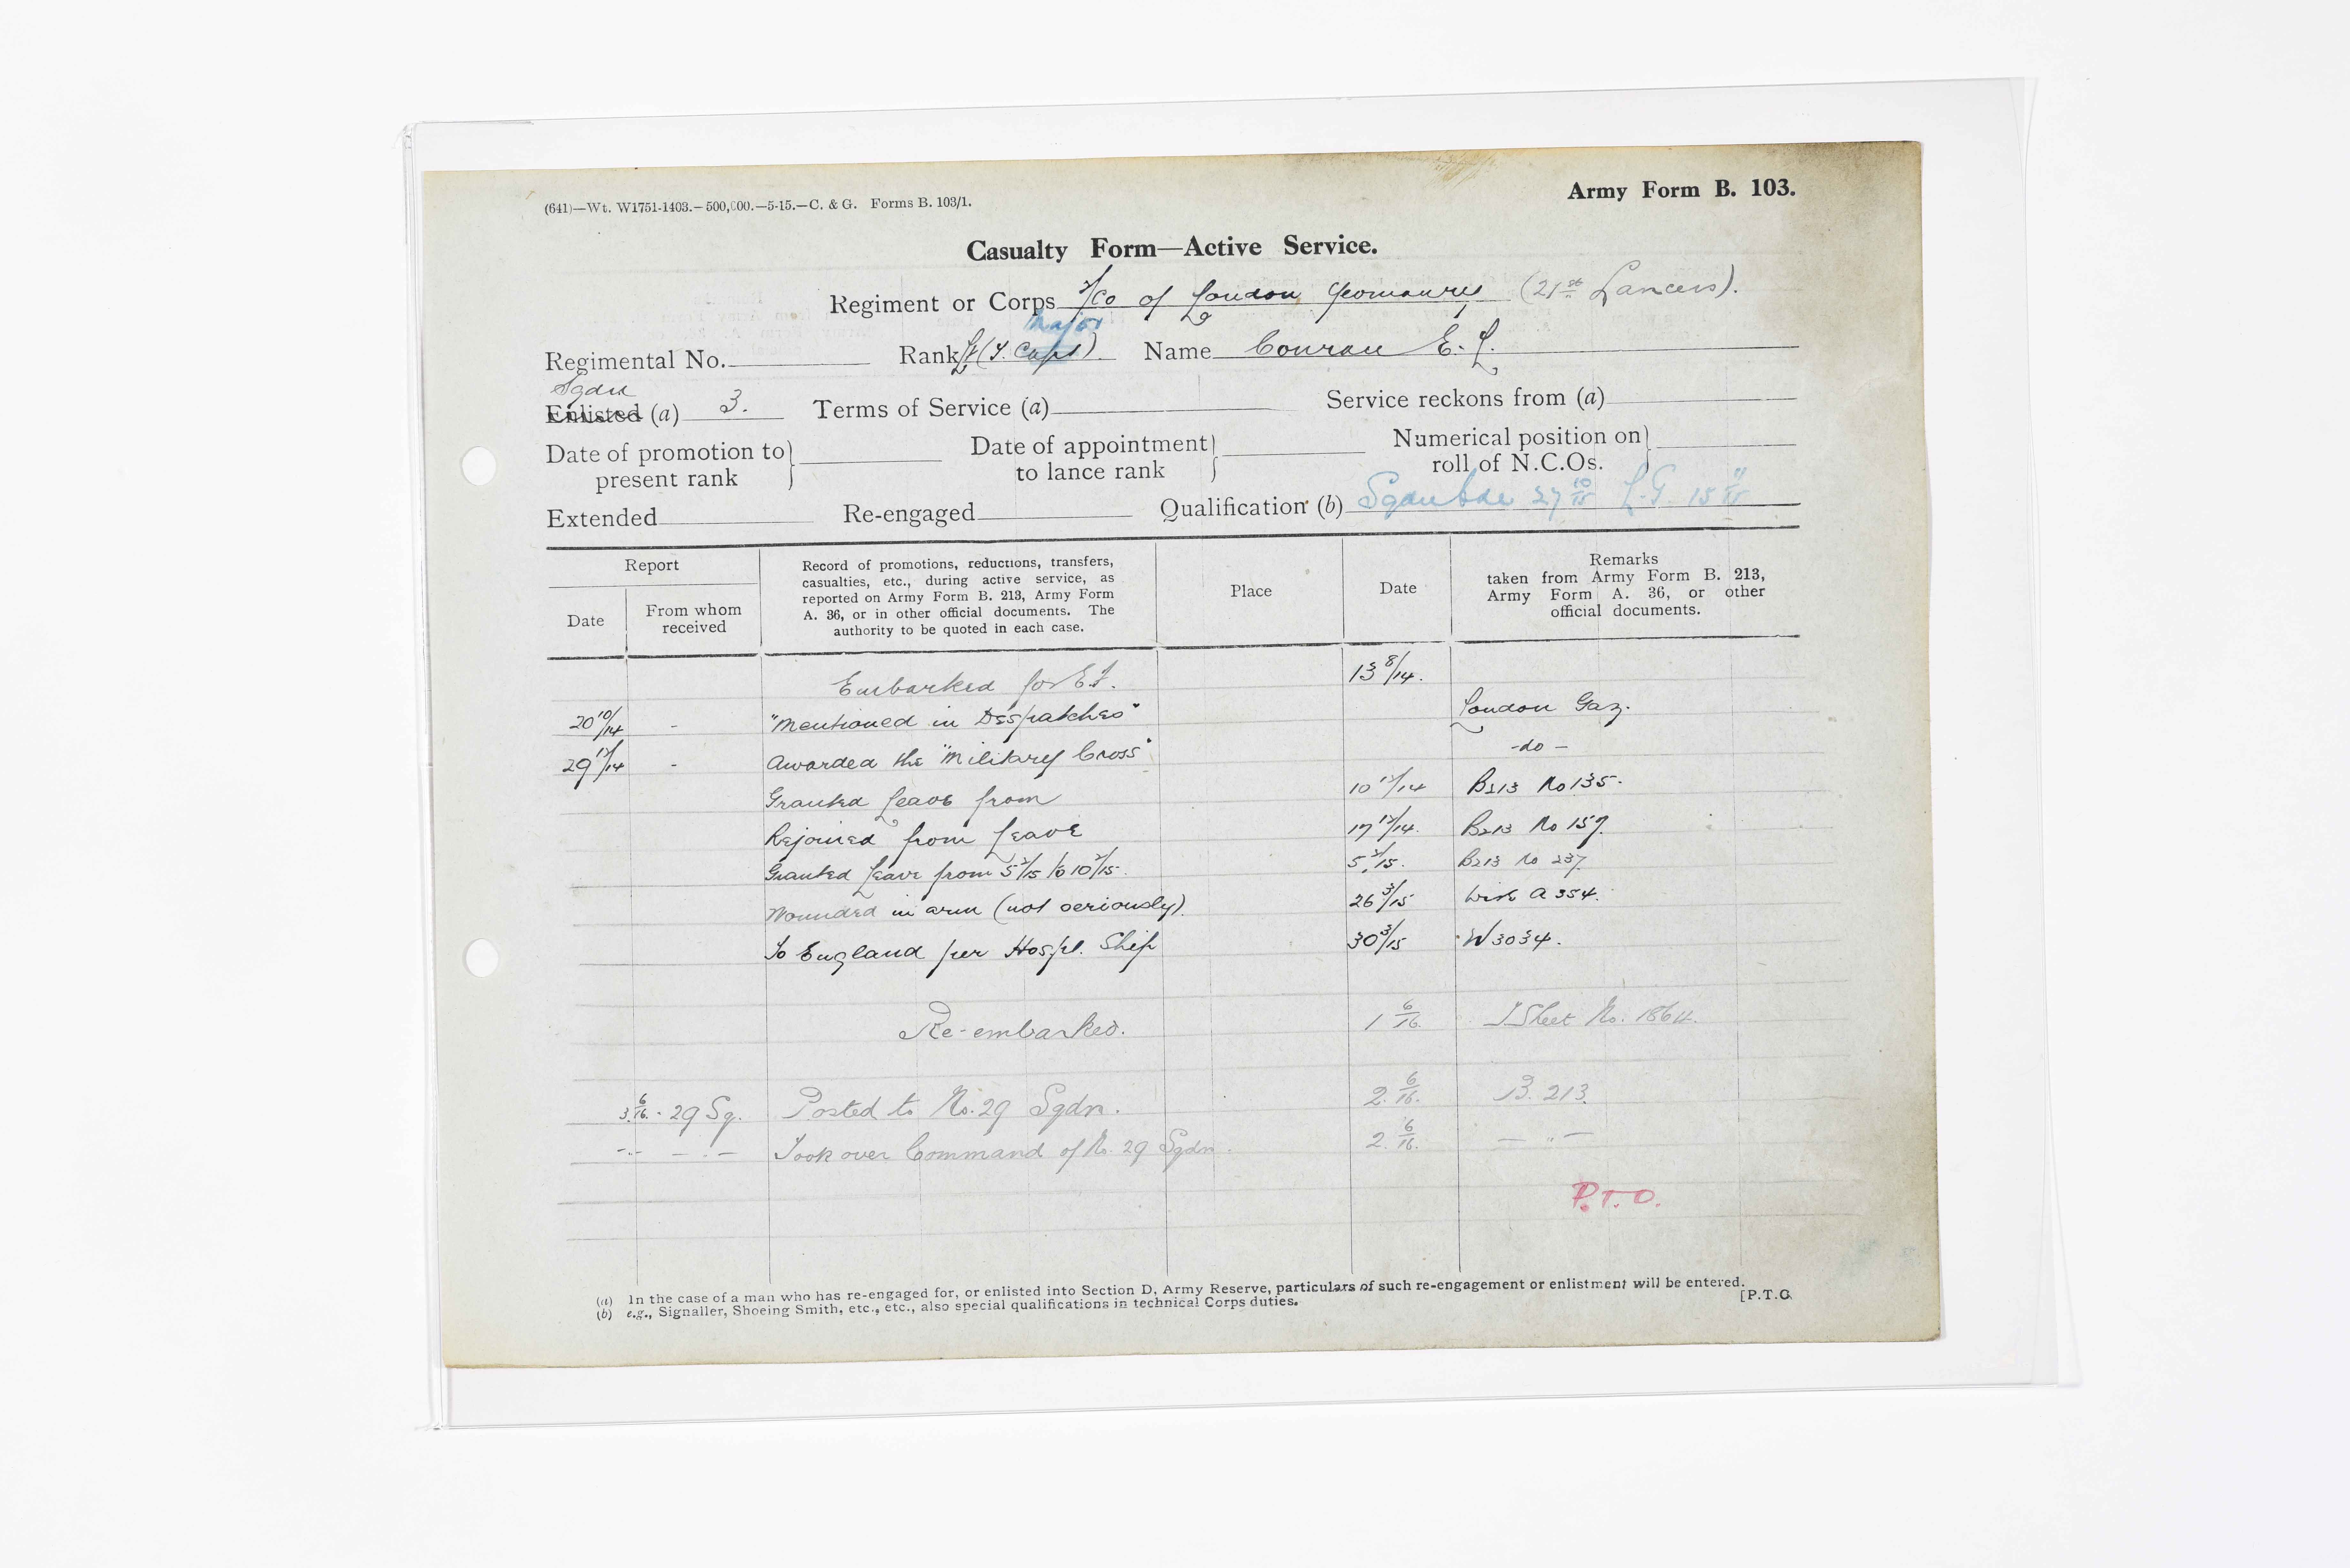 (641)—Wt. W1751-1403.—500,000.—5-15.—C. & G. Forms B. 103/1.
Army Form B. 103.
Casualty Form—Active Service.
Regiment or Corps 2/Co of London Yeomanry (21st Lancers).
Major
Regimental No. Rank Lt (T. Capt) Name Conran E. L.
Sqdn
Enlisted (a) 3. Terms of Service (a) Service reckons from (a)
Date of promotion to present rank Date of appointment to lance rank Numerical position on roll of N.C.Os.
Extended Re-engaged Qualification (b) Sqdn Cdr 27 10/15 L.G. 15 11/15
Report
Date
From whom received
Record of promotions, reductions, transfers,
casualties, etc., during active service, as
reported on Army Form B. 213, Army Form
A. 36, or in other official documents. The
authority to be quoted in each case.
Place
Date
Remarks
taken from Army Form B. 213,
Army Form A. 36, or other
official documents.
Embarked for E.F. 13 8/14.
20 10/14 - "Mentioned in Despatches" London Gaz.
29 12/14 - Awarded the "Military Cross" -do-
Granted Leave from 10 12/14 B213 No 135.
Rejoined from Leave 17 12/14. B213 No 157.
Granted Leave from 5 2/15 to 10 2/15. 5 2/15. B213 No 237.
Wounded in arm (not seriously). 26 3/15 Wire A 354.
To England per Hospl. Ship 30 3/15 W 3034.
Re-embarked. 1 6/16. I Sheet No. 1864.
3 6/16. 29 Sq. Posted to No. 29 Sqdn. 2. 6/16. B. 213.
-"- -"- Took over Command of No. 29 Sqdn. 2. 6/16. — " —
P.T.O.
(a) In the case of a man who has re-engaged for, or enlisted into Section D, Army Reserve, particulars of such re-engagement or enlistment will be entered.
(b) e.g., Signaller, Shoeing Smith, etc., etc., also special qualifications in technical Corps duties.
[P.T.O.